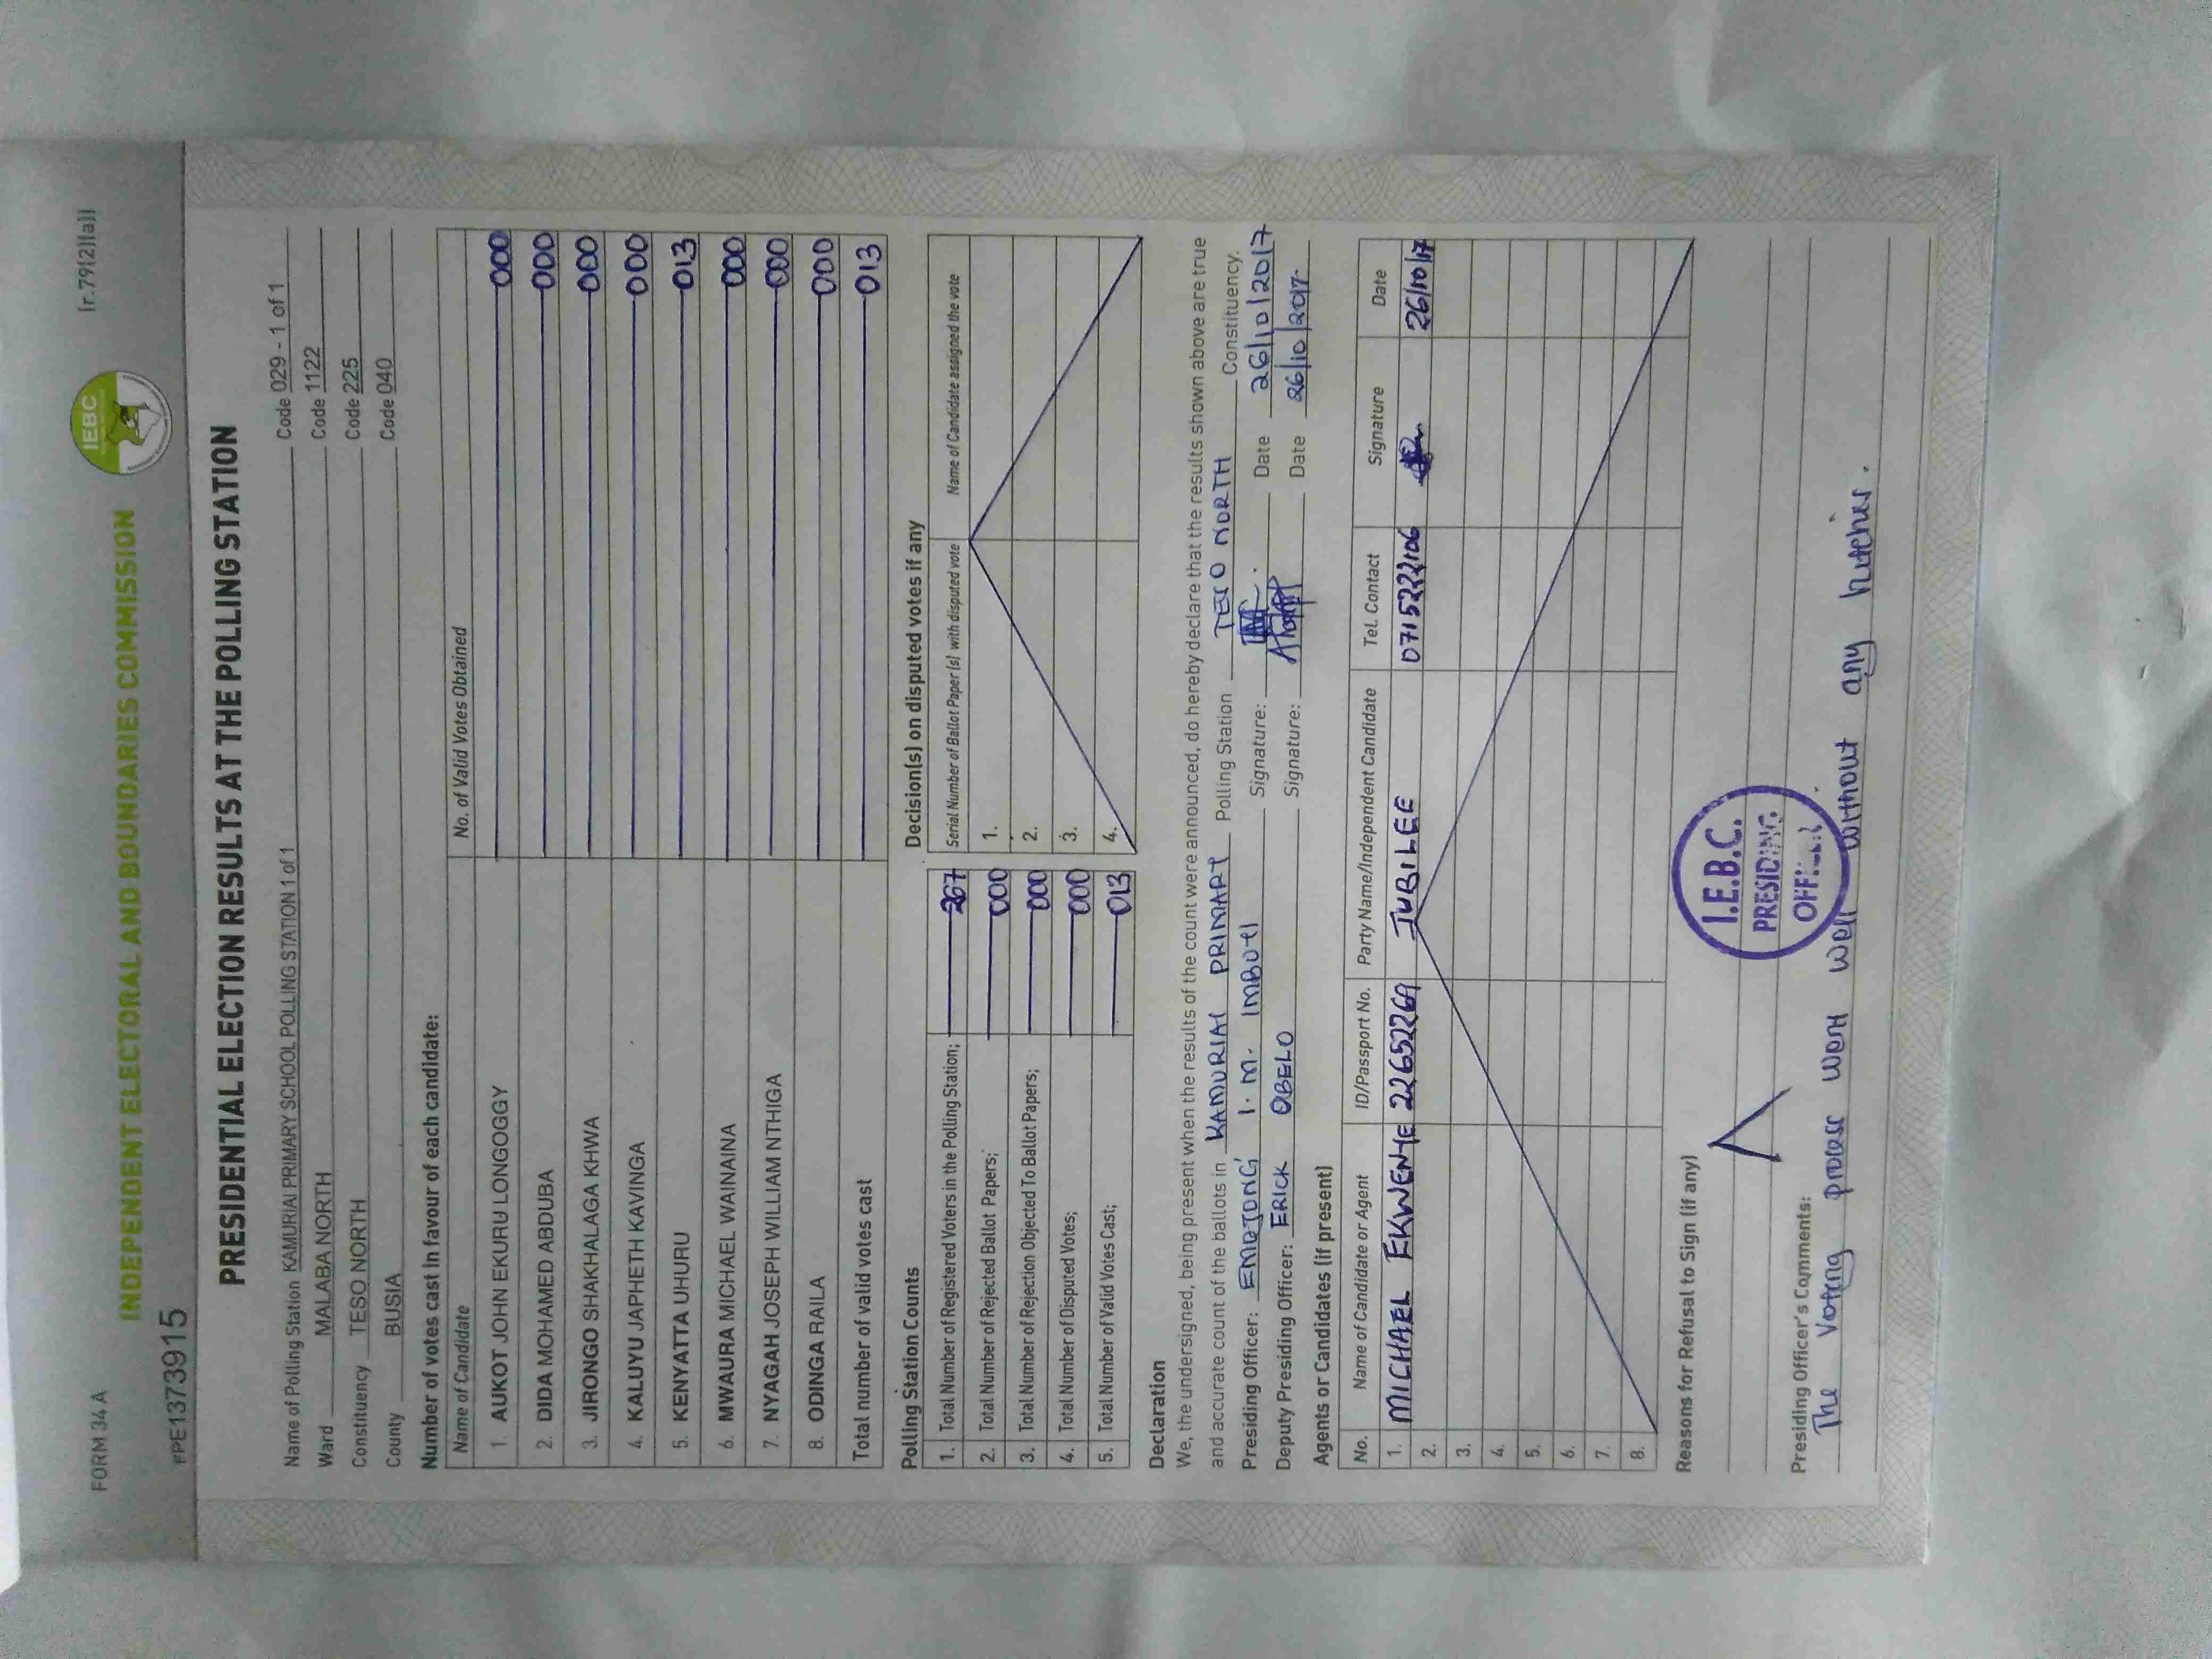 FORM 34 A
INDEPENDENT ELECTORAL AND BOUNDARIES COMMISSION
IEBC
[r.79(2)(a)]
PRESIDENTIAL ELECTION RESULTS AT THE POLLING STATION
Name of Polling Station KAMURIAI PRIMARY SCHOOL POLLING STATION 1 of 1 Code 029 - 1 of 1
Ward MALABA NORTH Code 1122
Constituency TESO NORTH Code 225
County BUSIA Code 040
Number of votes cast in favour of each candidate:
Name of Candidate No. of Valid Votes Obtained
1. AUKOT JOHN EKURU LONGOGGY 000
2. DIDA MOHAMED ABDUBA 000
3. JIRONGO SHAKHALAGA KHWA 000
4. KALUYU JAPHETH KAVINGA 000
5. KENYATTA UHURU 013
6. MWAURA MICHAEL WAINAINA 000
7. NYAGAH JOSEPH WILLIAM NTHIGA 000
8. ODINGA RAILA 000
Total number of valid votes cast 013
Polling Station Counts
1. Total Number of Registered Voters in the Polling Station; 267
2. Total Number of Rejected Ballot Papers; 000
3. Total Number of Rejection Objected To Ballot Papers; 000
4. Total Number of Disputed Votes; 000
5. Total Number of Valid Votes Cast; 013
Decision(s) on disputed votes if any
Serial Number of Ballot Paper (s) with disputed vote Name of Candidate assigned the vote
1.
2.
3.
4.
Declaration
We, the undersigned, being present when the results of the count were announced, do hereby declare that the results shown above are true
and accurate count of the ballots in KAMURIAI PRIMARY Polling Station TESO NORTH Constituency.
Presiding Officer: I. M. IMBUTI Signature: Date 26/10/2017
Deputy Presiding Officer: ERICK OBELO Signature: Date 26/10/2017
Agents or Candidates (if present)
No. Name of Candidate or Agent ID/Passport No. Party Name/Independent Candidate Tel. Contact Signature Date
1. MICHAEL EKWENYE 22652269 JUBILEE 0715222106 26/10/17
2.
3.
4.
5.
6.
7.
8.
Reasons for Refusal to Sign (if any)
I.E.B.C.
PRESIDING
Presiding Officer's Comments:
The Voting process went well without any hitches.